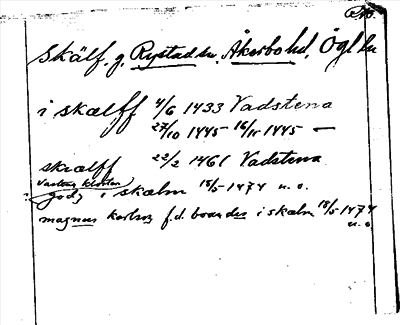 Skälf. g. Rystad sn. Åkerbo hd. Ögl. ln
i skælff 4/6 1433 Vadstena
27/10 1445 16/11 1445 —
skælff 22/2 1461 Vadstena
Vastena kloster
godz i skælm 18/5 1474 u. o.
magnus karlson f.d. boandes i skælm 18/5 1474
u. o